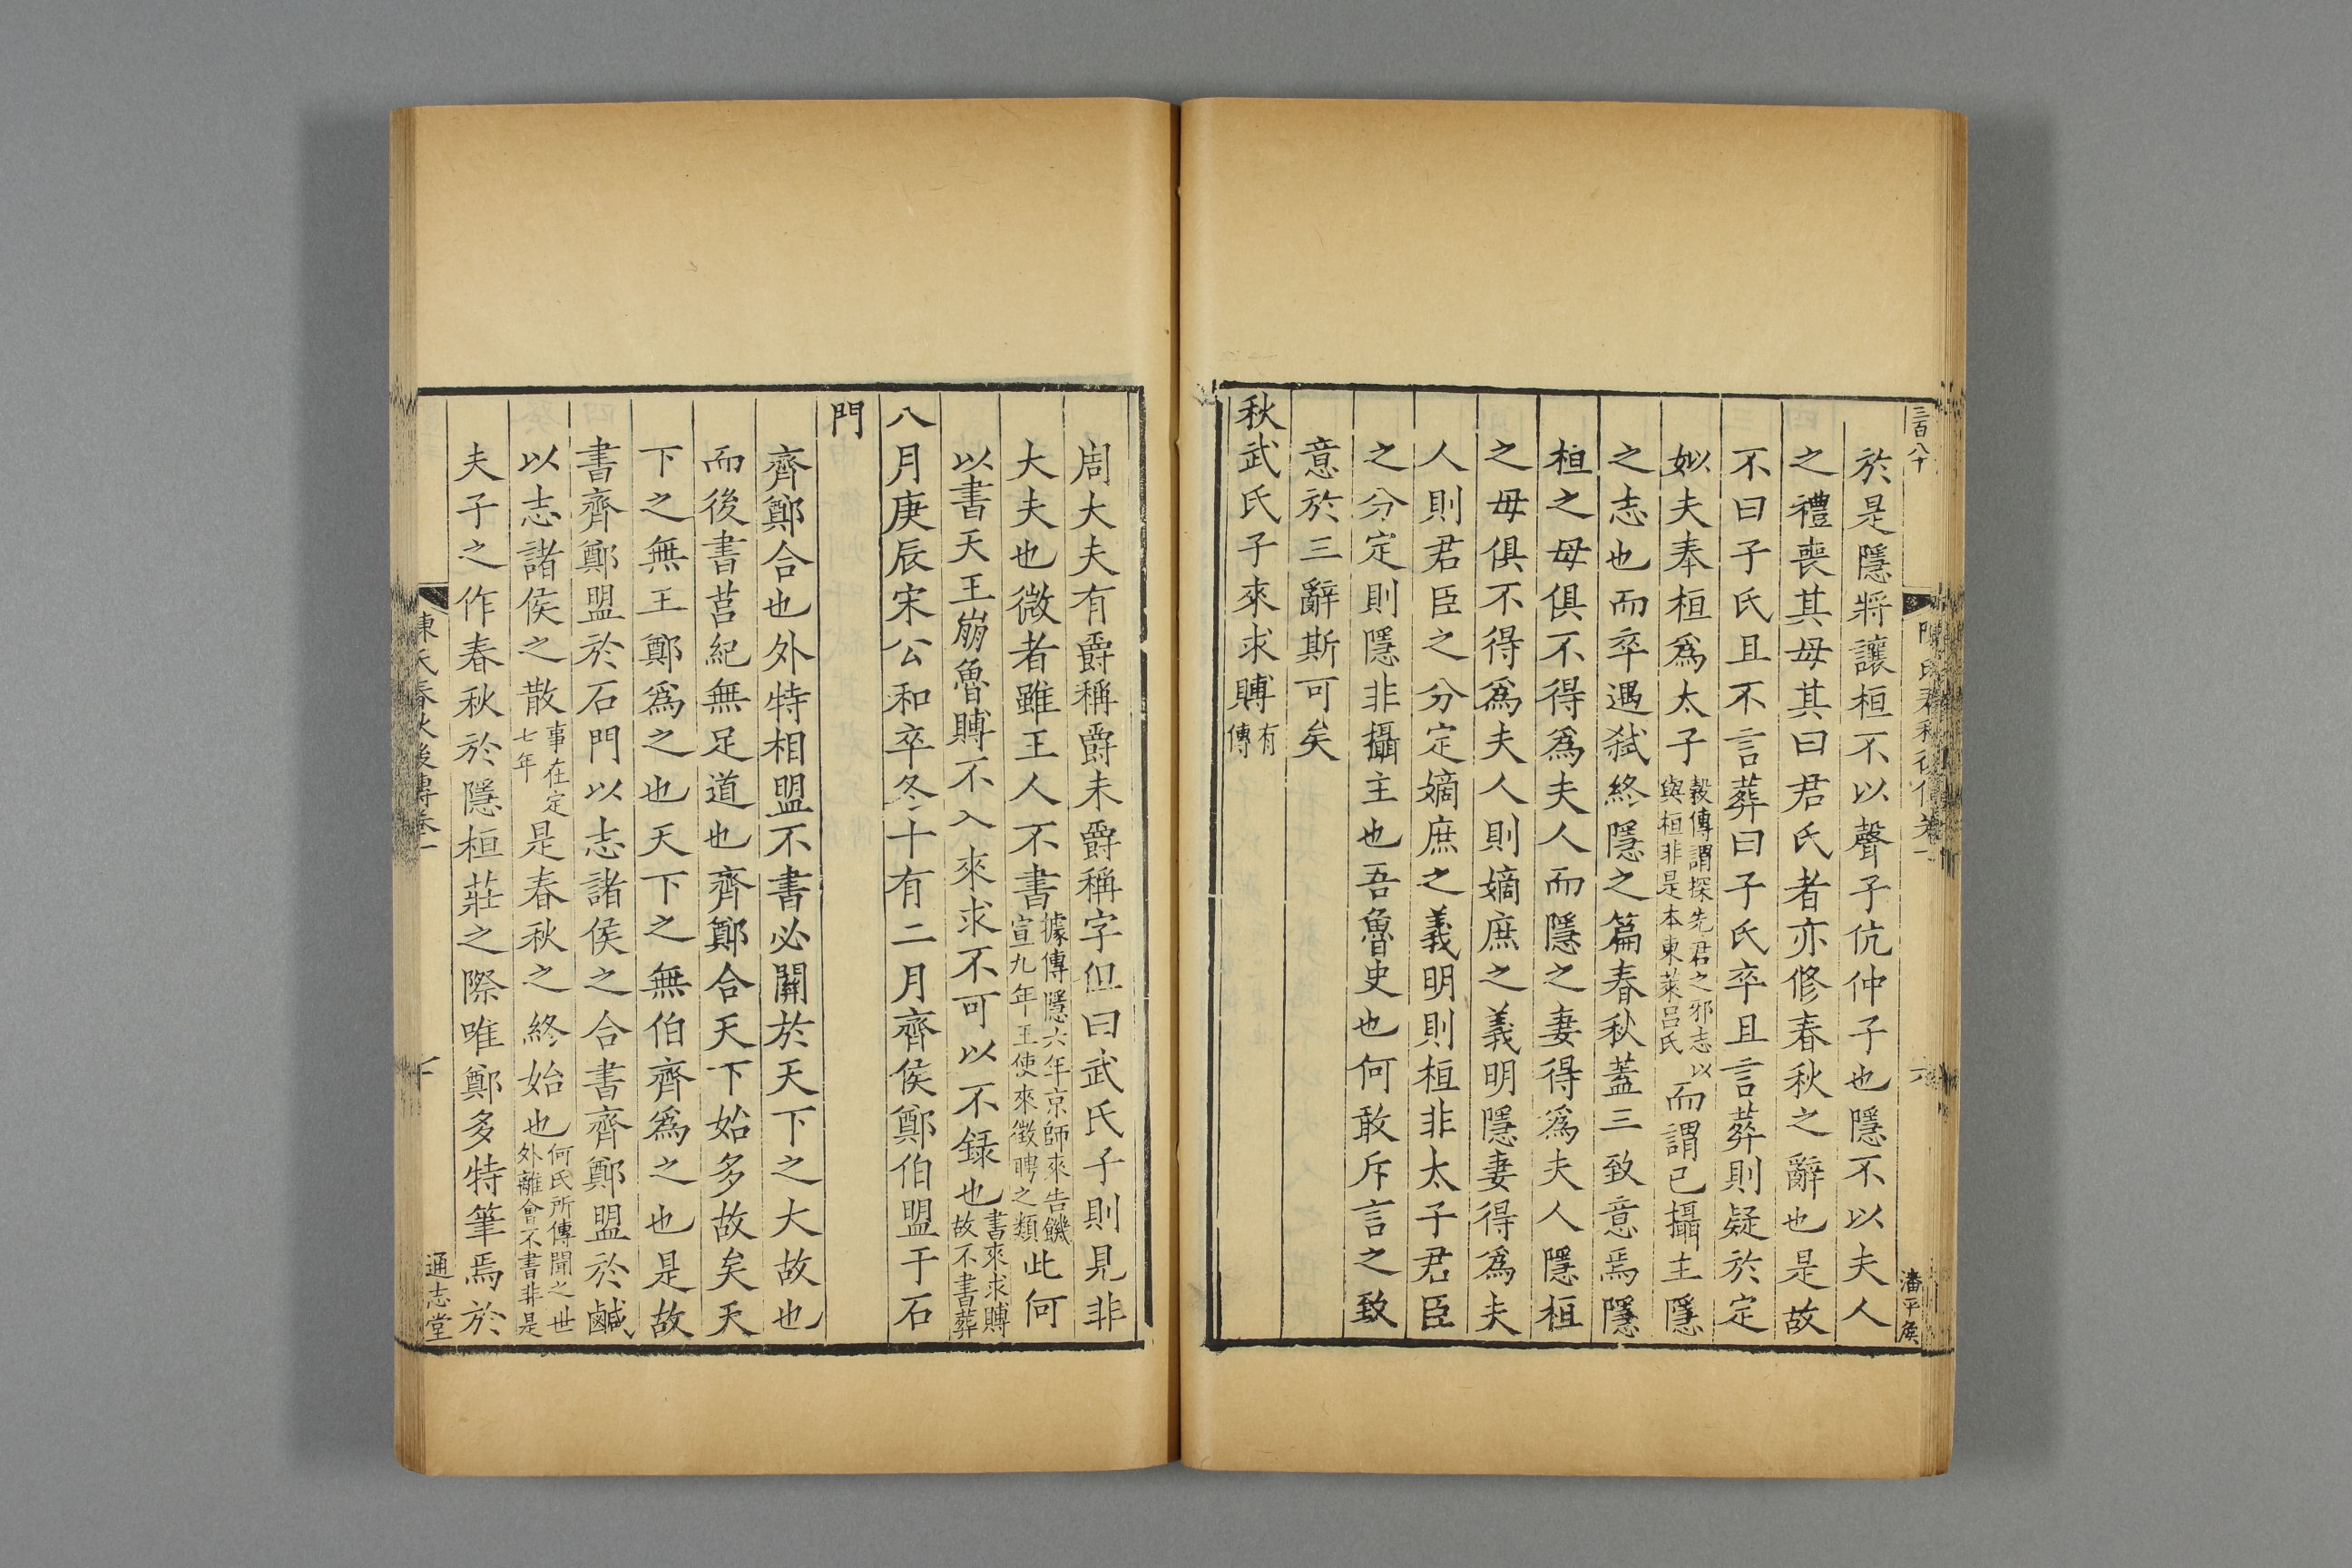 三百八十
陳氏春秋後傳卷一
六
潘平侯
於是隱將讓桓不以聲子伉仲子也隱不以夫人
之禮喪其母其曰君氏者亦修春秋之辭也是故
不曰子氏且不言葬曰子氏卒且言葬則疑於定
姒夫奉桓爲太子糓傳謂探先君之邪志以與桓非是本東萊呂氏而謂已攝主隱
之志也而卒遇弑終隱之篇春秋蓋三致意焉隱
桓之母俱不得爲夫人而隱之妻得爲夫人隱桓
之母俱不得爲夫人則嫡庶之義明隱妻得爲夫
人則君臣之分定嫡庶之義明則桓非太子君臣
之分定則隱非攝主也吾魯史也何敢斥言之致
意於三辭斯可矣
秋武氏子來求賻有傳
周大夫有爵稱爵未爵稱字但曰武氏子則見非
大夫也微者雖王人不書據傳隱六年京師來告饑宣九年王使來徵聘之類此何
以書天王崩魯賻不入來求不可以不録也書來求賻故不書葬
八月庚辰宋公和卒冬十有二月齊侯鄭伯盟于石
門
齊鄭合也外特相盟不書必關於天下之大故也
而後書莒紀無足道也齊鄭合天下始多故矣天
下之無王鄭爲之也天下之無伯齊爲之也是故
書齊鄭盟於石門以志諸侯之合書齊鄭盟於鹹
以志諸侯之散事在定七年是春秋之終始也何氏所傳聞之世外離會不書非是
夫子之作春秋於隱桓莊之際唯鄭多特筆焉於
陳氏春秋後傳卷一
通志堂